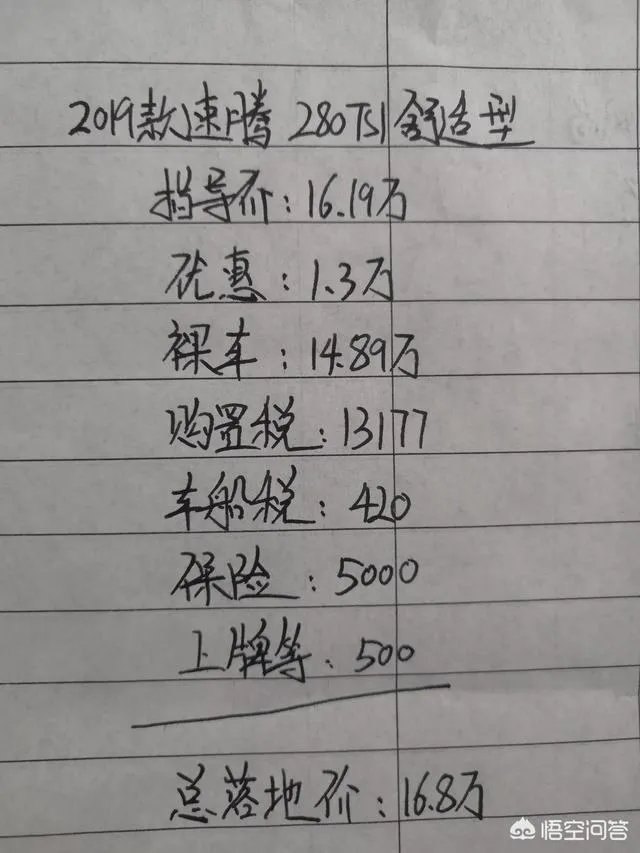 2019款速腾 280TSI 舒适型
指导价：16.19万
优惠：1.3万
裸车：14.89万
购置税：13177
车船税：420
保险：5000
上牌等：500
总落地价：16.8万
悟空问答